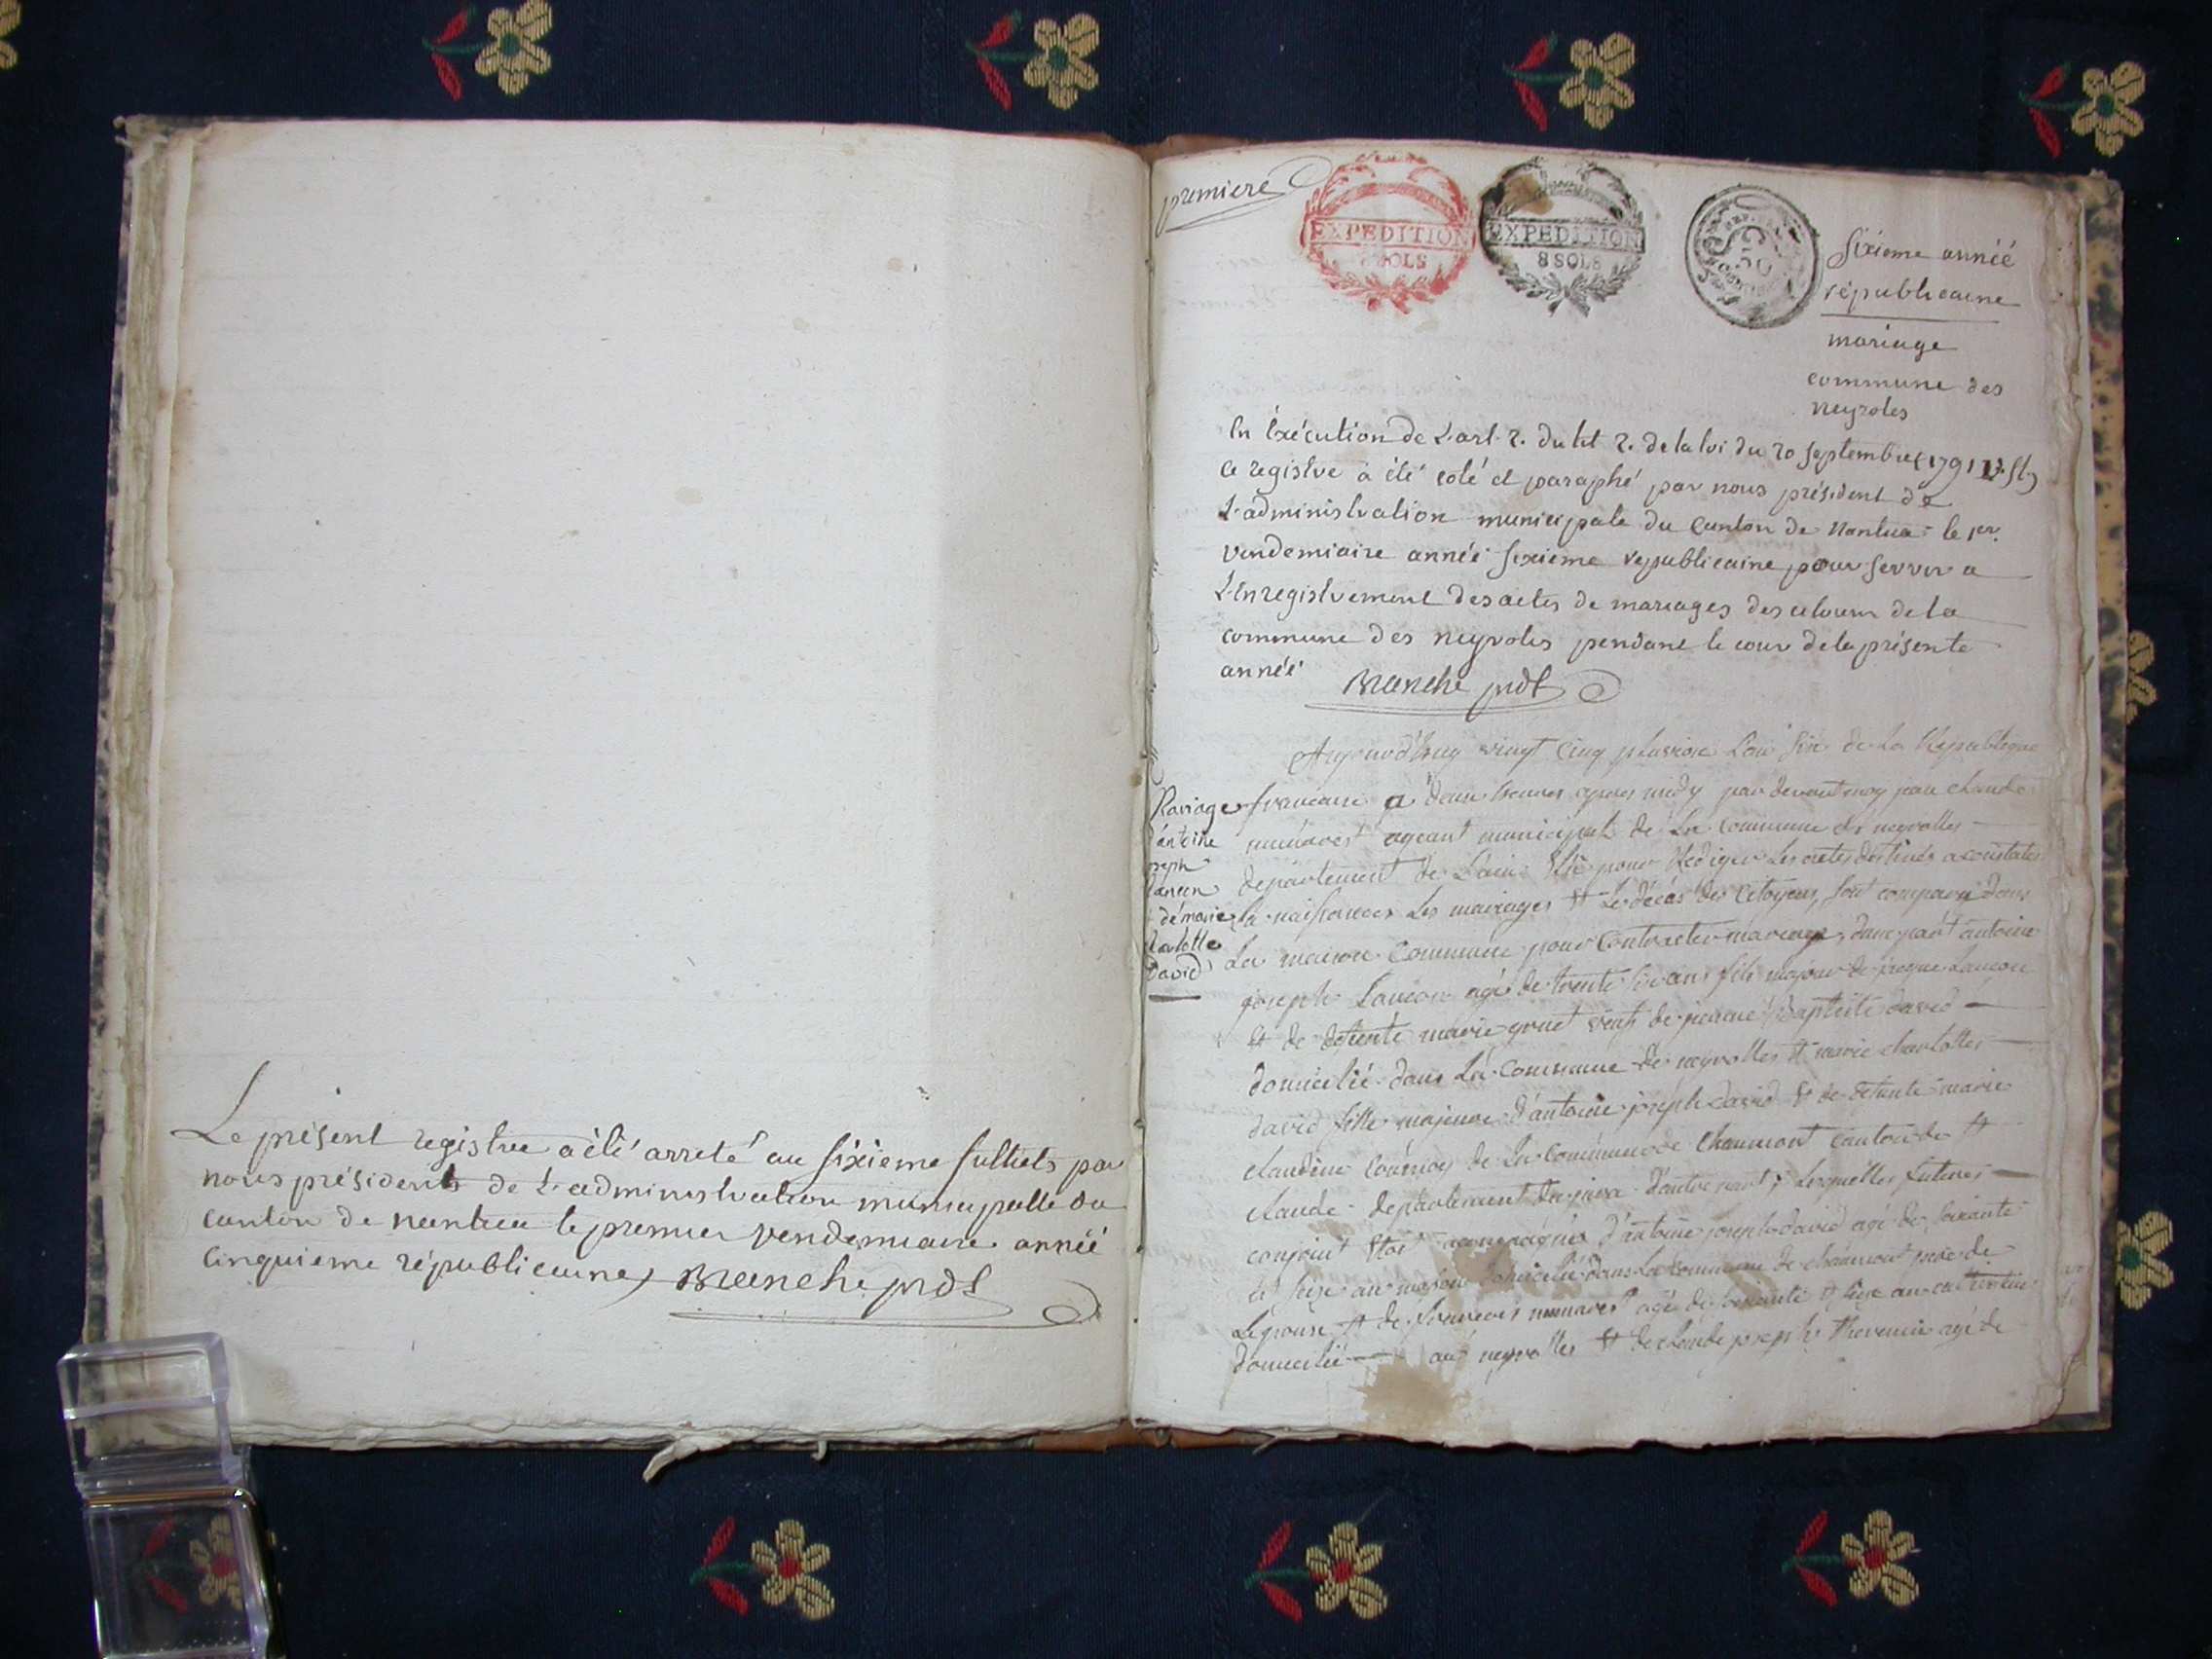 Le présent registre a été arreté au sixième fulliets par
nous présidents de L'administration municipalle du
canton de nantua le premier vendemiaire année
cinquieme républicaine Manche prdt
premiere
EXPEDITION
8 SOLS
EXPEDITION
8 SOLS
Sixieme année
républicaine
mariage
commune des
neyroles
En Exécution de L'art. 2. du tit 2. de la loi du 20 septembre 179
ce registre à été coté et paraphé par nous président de
L'administration municipale du Canton de Nantua le 1er
vendemiaire année sixieme republicaine pour servir a
L'Enregistrement des actes de mariages des de la
commune des neyroles pendant le cour de la présente
année Manche prdt
Mariage
d'antoine
joseph
Lancon
démarie
charlotte
David
Aujourd'huy vingt cinq pluviose L'an six de La Republique
francaise a deux heures apres midy par devant moy jean claude
ageant municipal de La Commune de neyrolles
departement de L'ain Elu pour Rediger Les actes destinés a constater
la naissances Les mairages et Le décès des Citoyens, sont comparu dans
La maison Commune pour Contracter mariage, dune part antoine
joseph Lancon agé de trente six ans fils majeur de jacque Lancon
et de defunte marie gruet veuf de Baptiste david
domicilié dans La Commune de neyrolles et marie charlottes
david fille majeure d'antoine joseph david et de defunte marie
claudine de La Commune de Chaumont canton de St
claude departement du jura d'autre part; Lesquelles futures
conjoint accompagnés d'antoine joseph david agé de soixante
et seize ans domicilié dans La Commune de chaumont père de
Lepouse et de francois agé de soixante et seize ans
domicilié aux neyrolles et de claude joseph thevenin agé de